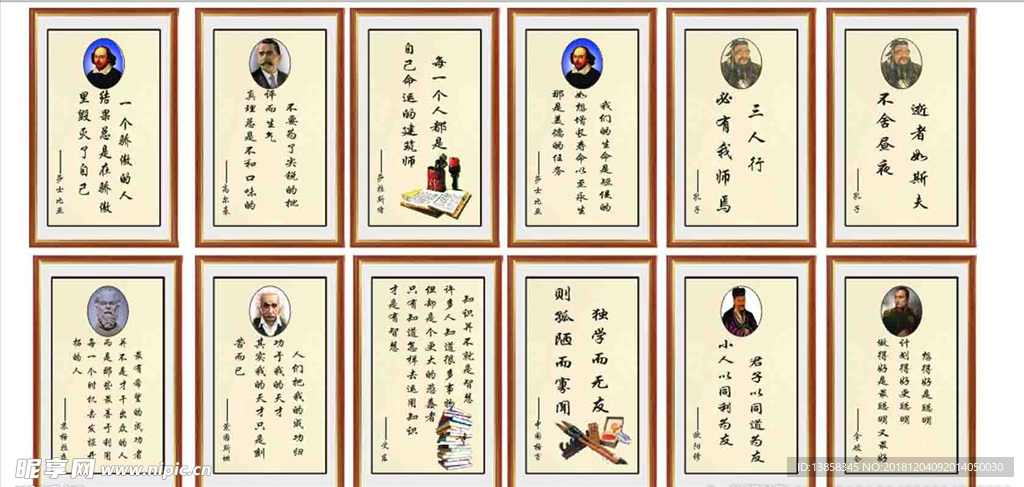 一个骄傲的人
结果总是在骄傲
里毁灭了自己
——莎士比亚
不要为了尖锐的批
评而生气
真理总是不和口味的
——高尔基
每一个人都是
自己命运的建筑师
——萨拉斯特
我们的生命是短促的
如想增长寿命以至永生
那是美德的任务
——莎士比亚
三人行
必有我师焉
——孔子
逝者如斯夫
不舍昼夜
——孔子
最有希望的成功者
并不是才干出众的人
而是那些最善于利用
每一个时机去发掘开
拓的人
——苏格拉底
人们把我的成功归
功于我的天才
其实我的天才只是刻
苦而已
——爱因斯坦
知识并不就是智慧
许多人知道很多事物
但却是个更大的愚蠢者
只有知道怎样去运用知识
才是有智慧
独学而无友
则孤陋而寡闻
——中国格言
君子以同道为友
小人以同利为友
——欧阳修
想得好是聪明
计划得好更聪明
做得好是最聪明又最好
——拿破仑
昵享网 www.nipic.cn
ID:13858345 NO:20181204092014050030